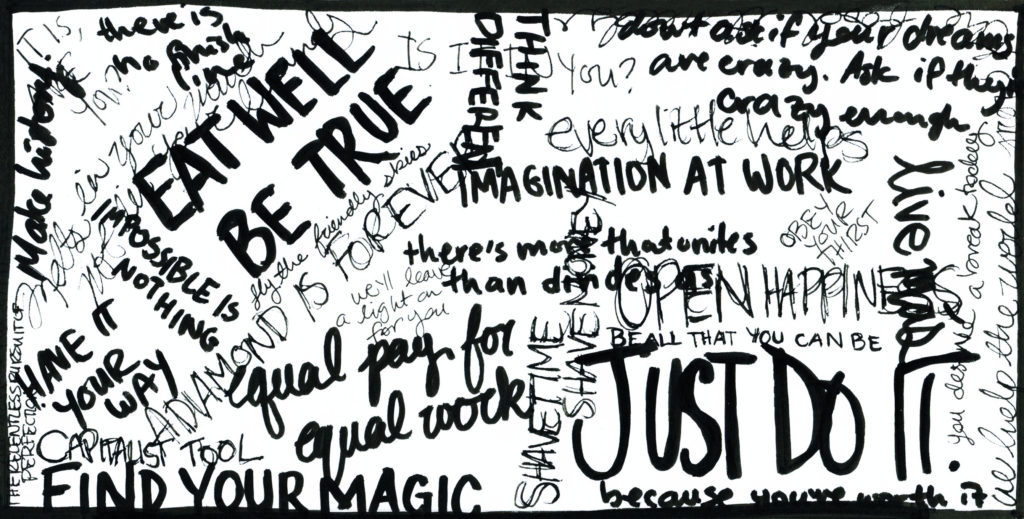 there is
no finish
line
Make history!
EAT WELL
BE TRUE
IMPOSSIBLE IS
NOTHING
melts in your mouth
not in your hands
HAVE IT
YOUR
WAY
THE RELENTLESS PURSUIT OF
PERFECTION
fly the friendly skies
A DIAMOND IS FOREVER
we'll leave
a light on
for you
CAPITALIST TOOL
FIND YOUR MAGIC
equal pay for
equal work
IS IT IN YOU?
THINK
DIFFERENT
don't ask if your dreams
are crazy. Ask if they
crazy enough
every little helps
IMAGINATION AT WORK
there's more that unites
than divides us
OBEY
YOUR
THIRST
OPEN HAPPINESS
BE ALL THAT YOU CAN BE
JUST DO IT.
because you're worth it
SHAVE TIME
SHAVE MONEY
live mas
you deserve a break today